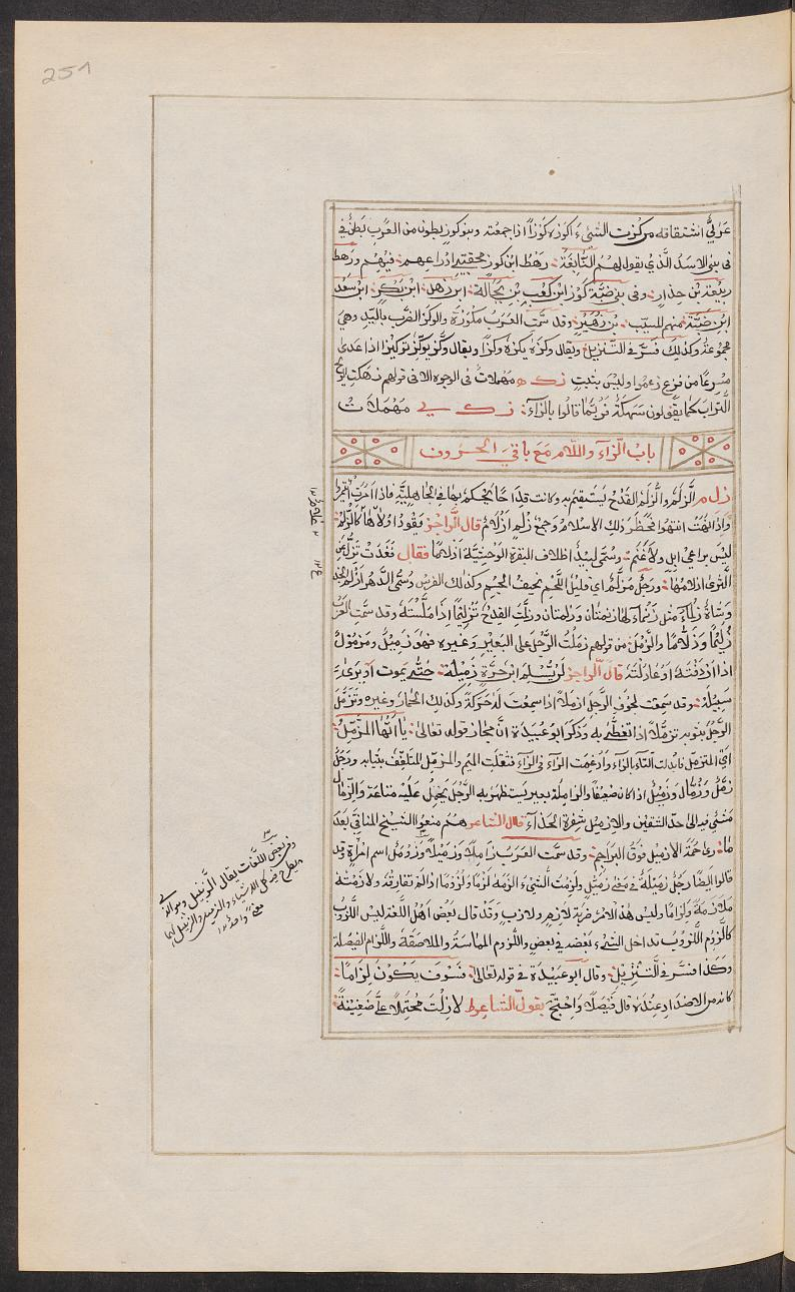 251
عربيٌّ اشتقاقه من كُزت الشئ اكوزه كَوزاً اذا جمعته وبنو كوز بطون من العرب بطنٌ في
فى بنى الاسد الَّذى يقول لهم النَّابغة: رهط ابن كوز محقبى ادراعهم: فيهم ورهط
ربيعة بن حذار: وفى بنى ضبّة كوز ابن كعب بن بجالة: ابن ذهل: ابن بكر: ابن سعد
ابن ضبّة منهم المسيب: بن زهير: وقد سمّت العرب مكوزة والوكز الضرب باليد وهى
مجموعة وكذلك فسّر فى التنزيل: ويقال وكزه يكزه وكزًا ويقال وكّز يوكّز توكيزا اذا عدى
مسرعًا من فزع زعموا وليس بثبت ز ك ه مهملات فى الوجوه الا فى قولهم زهكت الريح
التراب كما يقولون سهكة فربّما قالوا بالزاء: ز ك ى مهملات
باب الزاء واللام مع باقى الحروف
ز ل م الزَّلَم والزُّلَم القدح يستقسم به وكانت قداحًا يحكم بها فى الجاهلية فاذا امرت ائتمروا
واذا نهت انتهوا فحظر ذلك الاسلام وجمع زلم ازلام قال الراجز يقود اولاها كالزلم:
ليس براعى ابل ولا غنم: وسمّى لبيد اظلاف البقرة الوحشية ازلامًا فقال فغدت تزلّ عن
الثرى ازلامها: ورجل مزلّم اى قليل اللحم نحيف الجسم وكذلك الفرس وسمّى الدهر ازلم الجذع
وشاة زلماء مثل زنماء لها زنمتان وزلمتان وزلّمت القدح تزليمًا اذا ملّسته وقد سمّت العرب
زليمًا وزلّامًا والزمل من قولهم زملت الرجل على البعير وغيره فهو زميل ومزمول
اذا اردفته او عادلته قال الراجز لن يسلم ابن حرة زميله: حتى يموت او يرى
سبيله: وقد سمعت لجوف الرجل ازملًا اذا سمعت له حركة وكذلك الحمار وغيره وتزمّل
الرجل بثوبه تزملًا اذا تغطّى به وذكر ابو عبيدة انّ مجاز قوله تعالى: يا ايّها المزّمّل:
اى المتزمّل فابدلت التاء بالزاء وادغمت الزاء فى الزاء فثقلت الميم والمزمّل المتلفّف بثيابه ورجل
زمّل وزمّال وزميل اذا كان ضعيفًا والزاملة بعير يستظهر به الرجل يحمل عليه متاعه والزمال
مشى فيه الى احد الشقين والازميل شفرة الحذّاء قال الشاعر هم منعوا الشيخ المنافى بعد
ما: رأى حمة الازميل فوق البراجم: وقد سمّت العرب زاملًا وزميلًا وزومل اسم امرأة وقد
قالوا ايضا رجل زميلة فى معنى زميل ولزمت الشىء الزمه لزمًا ولزومًا اذا لم تفارقه ولازمته
ملازمة ولزامًا وليس هذا الامر ضربة لازم ولازب وقد قال بعض اهل اللغة ليس اللزوب
كاللزوم اللزوب تداخل الشىء بعضه فى بعض واللزوم المماسة والملاصقة واللزام الفيصلة
وكذا فسّر فى التنزيل: وقال ابو عبيدة فى قوله تعالى: فسوف يكون لزامًا:
كانه من الاضداد عنده قال فيصلا واحتجّ بقول الشاعر لا زلت محتملًا علىّ ضغينة:
وفى بعض اللغات يقال الزنبيل